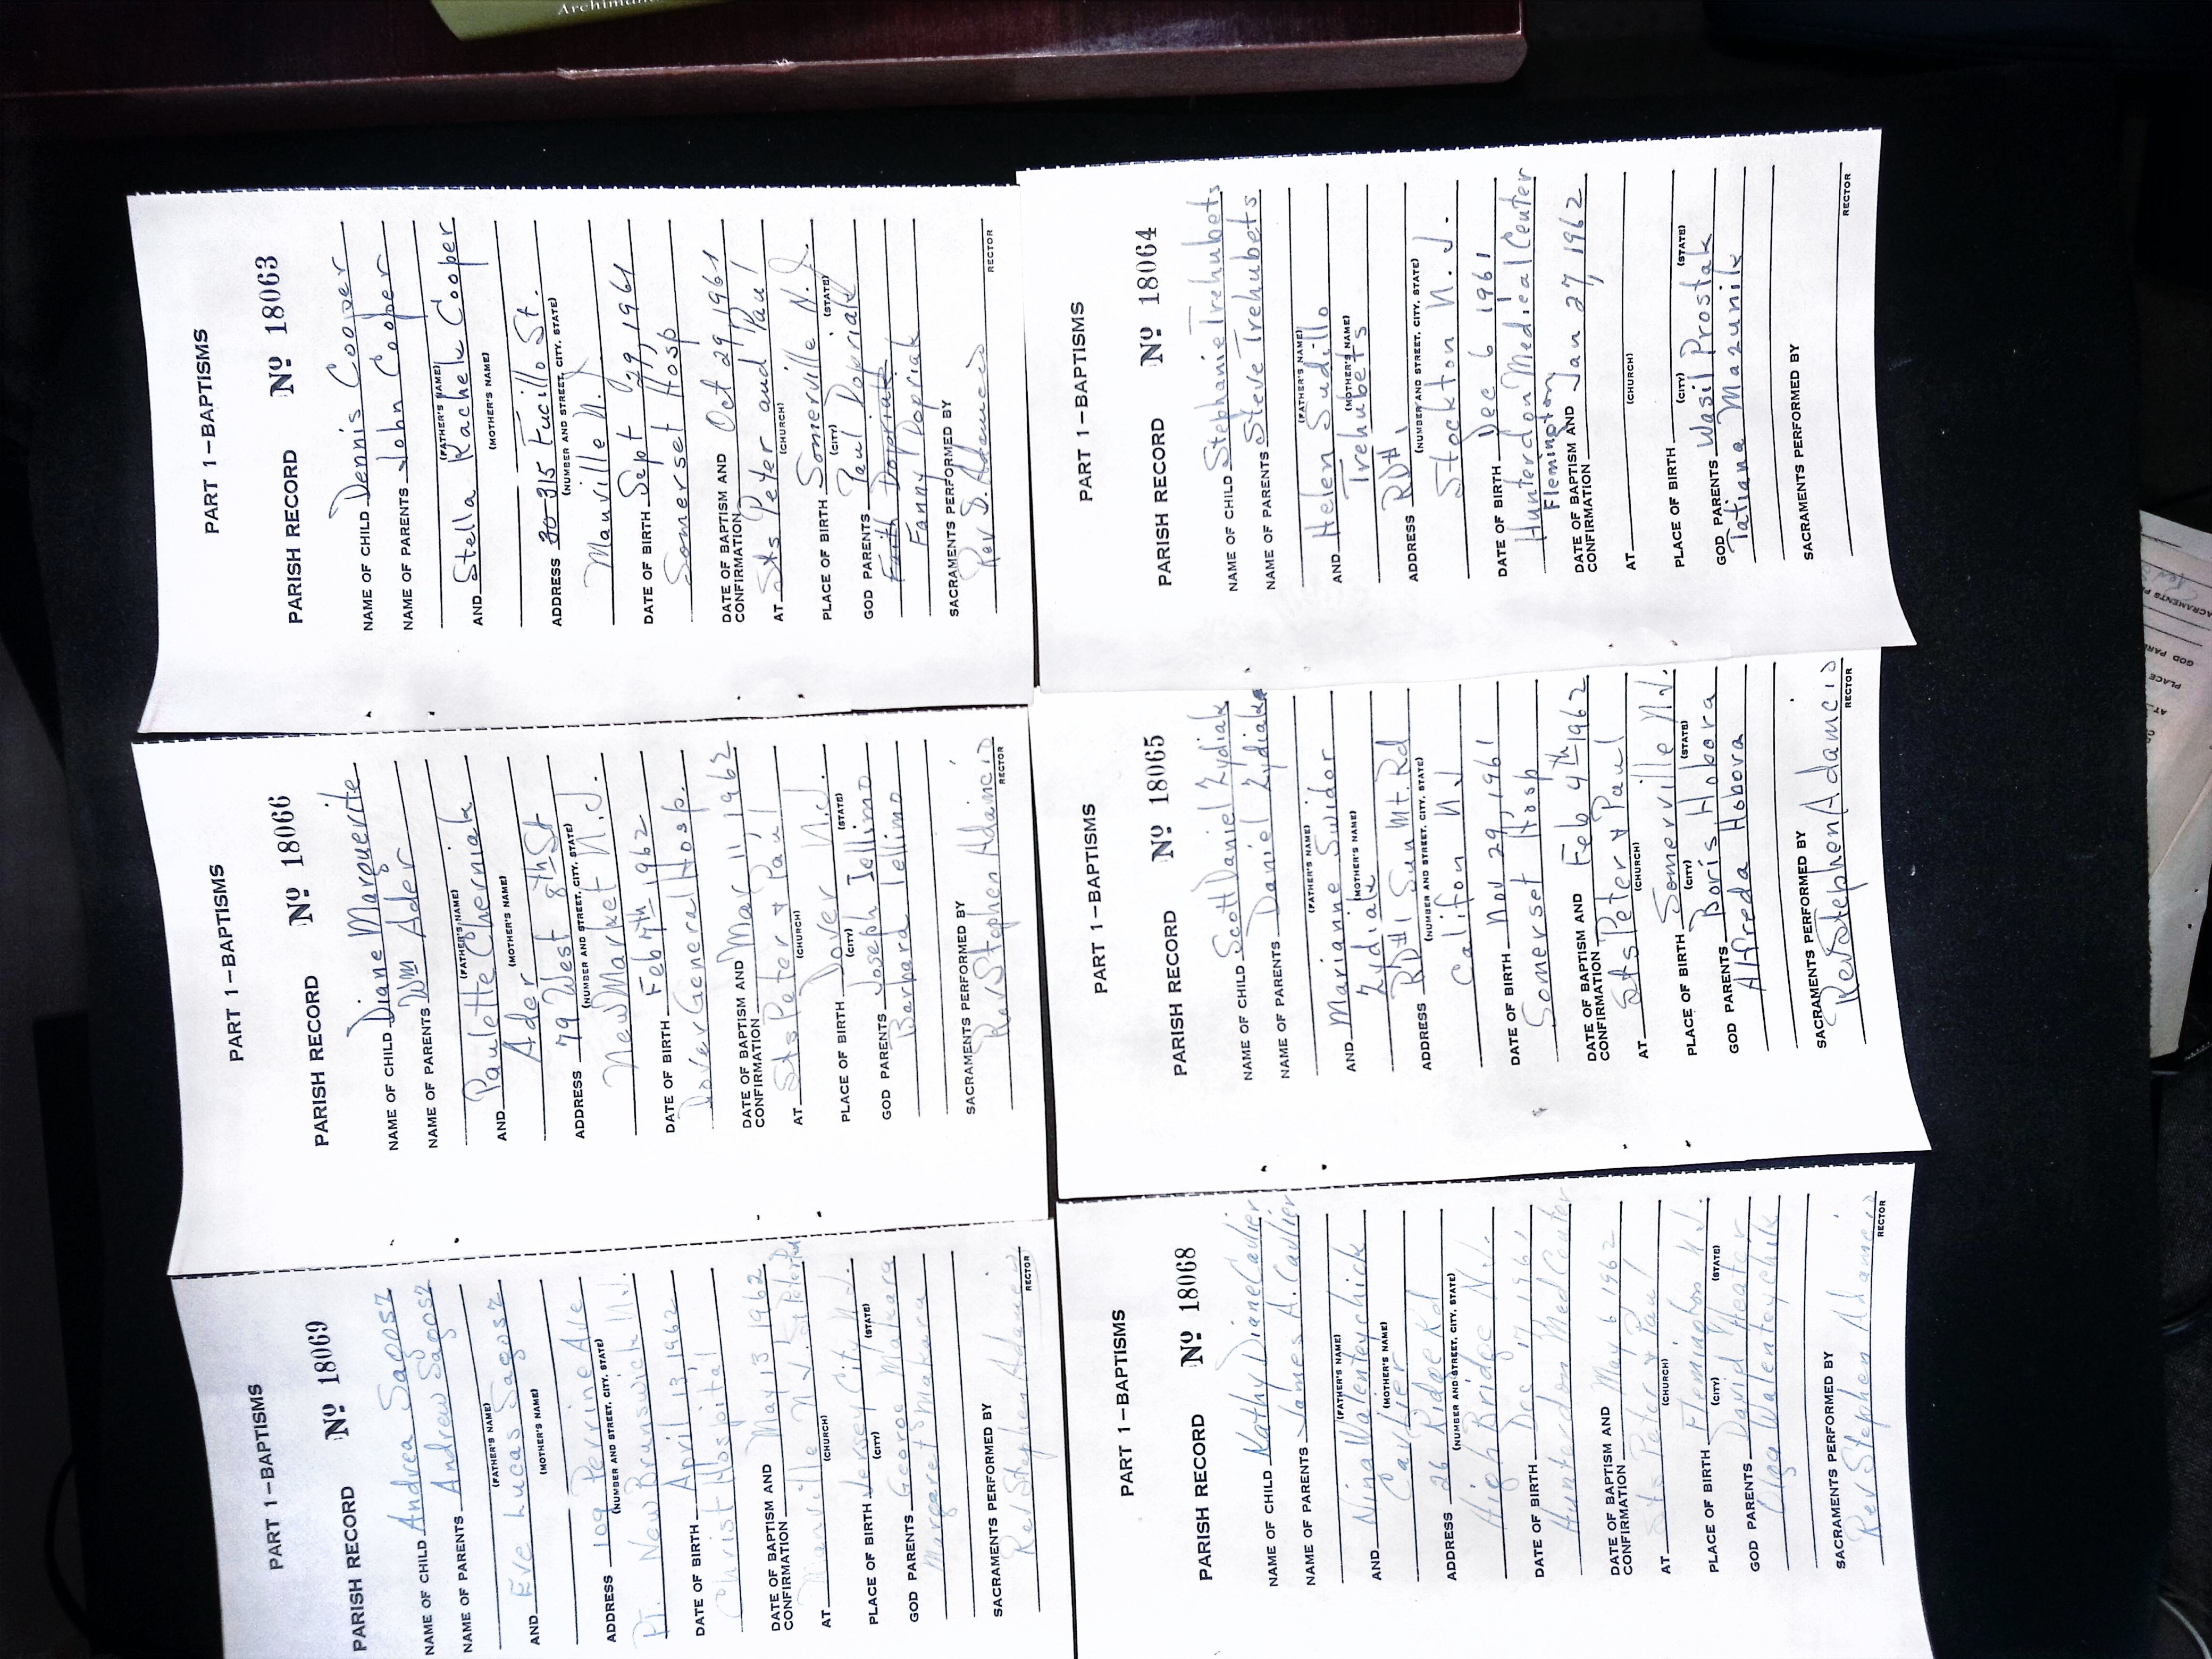 PART 1-BAPTISMS
PARISH RECORD Nº 18069
NAME OF CHILD Andrea Sagosz
NAME OF PARENTS Andrew Sagosz
(FATHER'S NAME)
AND Eve Lucas Sagosz
(MOTHER'S NAME)
ADDRESS 109 Perrine Ave
(NUMBER AND STREET, CITY, STATE)
New Brunswick N.J.
DATE OF BIRTH April 13, 1962
Christ Hospital
DATE OF BAPTISM AND CONFIRMATION May 13, 1962
AT Manville N.J. St Peter
(CHURCH)
PLACE OF BIRTH Jersey City N.J.
(CITY) (STATE)
GOD PARENTS George Makara
Margaret Makara
SACRAMENTS PERFORMED BY
Rev Stephen Adamcio
RECTOR
PART 1-BAPTISMS
PARISH RECORD Nº 18066
NAME OF CHILD Diane Marguerite
NAME OF PARENTS Wm Ader
(FATHER'S NAME)
AND Paulette Cherniak
(MOTHER'S NAME)
Ader
ADDRESS 79 West 8th St
(NUMBER AND STREET, CITY, STATE)
New Market N.J.
DATE OF BIRTH Feb 7th 1962
Dover General Hosp.
DATE OF BAPTISM AND CONFIRMATION Mar 11, 1962
AT Sts Peter + Paul
(CHURCH)
PLACE OF BIRTH Dover N.J.
(CITY) (STATE)
GOD PARENTS Joseph Iellimo
Barbara Iellimo
SACRAMENTS PERFORMED BY
Rev Stephen Adamcio
RECTOR
PART 1-BAPTISMS
PARISH RECORD Nº 18063
NAME OF CHILD Dennis Cooper
NAME OF PARENTS John Cooper
(FATHER'S NAME)
AND Stella Rachek Cooper
(MOTHER'S NAME)
ADDRESS 30 315 Fucillo St.
(NUMBER AND STREET, CITY, STATE)
Manville N.J.
DATE OF BIRTH Sept 29, 1961
Somerset Hosp
DATE OF BAPTISM AND CONFIRMATION Oct 29, 1961
AT Sts Peter and Paul
(CHURCH)
PLACE OF BIRTH Somerville N.J.
(CITY) (STATE)
GOD PARENTS Paul Dopriak
Faith Dopriak
Fanny Dopriak
SACRAMENTS PERFORMED BY
Rev S. Adamcio
RECTOR
PART 1-BAPTISMS
PARISH RECORD Nº 18068
NAME OF CHILD Kathy Diane Cavlier
NAME OF PARENTS James A. Cavlier
(FATHER'S NAME)
AND Nina Walenteychick
(MOTHER'S NAME)
Cavlier
ADDRESS 26 Ridge Rd
(NUMBER AND STREET, CITY, STATE)
High Bridge N.J.
DATE OF BIRTH Dec 17, 1961
Hunterdon Med Center
DATE OF BAPTISM AND CONFIRMATION May 6, 1962
AT Sts Peter + Paul
(CHURCH)
PLACE OF BIRTH Flemington N.J.
(CITY) (STATE)
GOD PARENTS David Heater
Olga Walenteychik
SACRAMENTS PERFORMED BY
Rev Stephen Adamcio
RECTOR
PART 1-BAPTISMS
PARISH RECORD Nº 18065
NAME OF CHILD Scott Daniel Zydiak
NAME OF PARENTS Daniel Zydiak
(FATHER'S NAME)
AND Marianne Swidor
(MOTHER'S NAME)
Zydiak
ADDRESS RD#1 Sun Mt. Rd
(NUMBER AND STREET, CITY, STATE)
Califon NJ
DATE OF BIRTH Nov 29, 1961
Somerset Hosp
DATE OF BAPTISM AND CONFIRMATION Feb 4th 1962
AT Sts Peter + Paul
(CHURCH)
PLACE OF BIRTH Somerville N.J.
(CITY) (STATE)
GOD PARENTS Boris Hobora
Alfreda Hobora
SACRAMENTS PERFORMED BY
Rev Stephen Adamcio
RECTOR
PART 1-BAPTISMS
PARISH RECORD Nº 18064
NAME OF CHILD Stephanie Trehubets
NAME OF PARENTS Steve Trehubets
(FATHER'S NAME)
AND Helen Sudillo
(MOTHER'S NAME)
Trehubets
ADDRESS RD#1
(NUMBER AND STREET, CITY, STATE)
Stockton N.J.
DATE OF BIRTH Dec 6 1961
Hunterdon Medical Center
Flemington
DATE OF BAPTISM AND CONFIRMATION Jan 27, 1962
AT
(CHURCH)
PLACE OF BIRTH
(CITY) (STATE)
GOD PARENTS Wasil Prostak
Tatiana Mazunik
SACRAMENTS PERFORMED BY
RECTOR